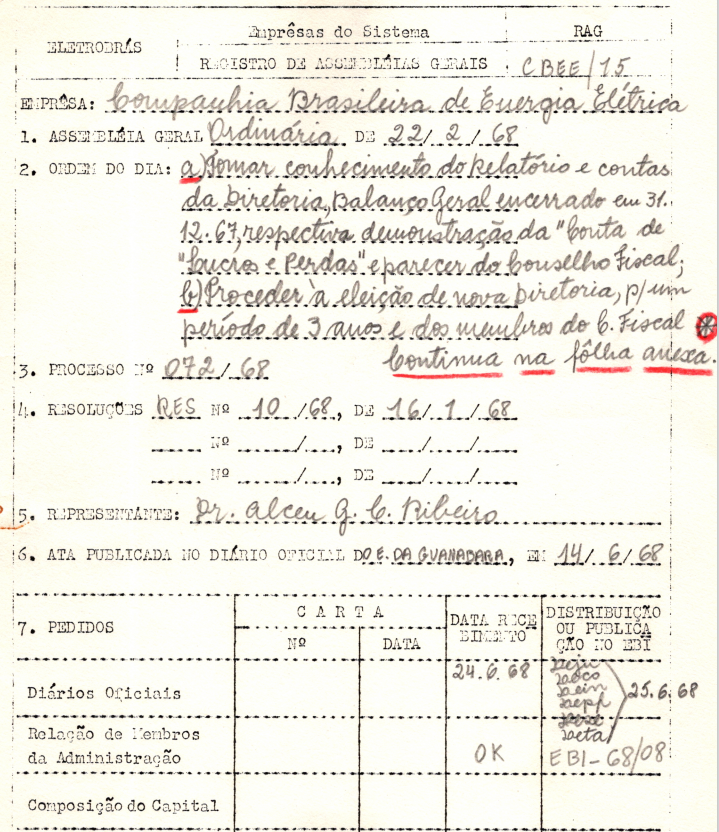 ELETROBRÁS
Emprêsas do Sistema
RAG
REGISTRO DE ASSEMBLÉIAS GERAIS
CBEE/15
EMPRÊSA: Companhia Brasileira de Energia Elétrica
1. ASSEMBLÉIA GERAL Ordinária DE 22/2/68
2. ORDEM DO DIA: a) Tomar conhecimento do Relatório e contas
da Diretoria, Balanço Geral encerrado em 31.
12.67, respectiva demonstração da "Conta de
"Lucros e Perdas" e parecer do Conselho Fiscal;
b) Proceder à eleição de nova Diretoria, p/ um
período de 3 anos e dos membros do C. Fiscal *
Continua na fôlha anexa.
3. PROCESSO Nº 072/68
4. RESOLUÇÕES RES Nº 10/68, DE 16/1/68
Nº / , DE / /
Nº / , DE / /
5. REPRESENTANTE: Dr. Alceu G. C. Ribeiro
6. ATA PUBLICADA NO DIÁRIO OFICIAL DO E. DA GUANABARA, EM 14/6/68
7. PEDIDOS
CARTA
Nº
DATA
DATA RECE
BIMENTO
DISTRIBUIÇÃO
OU PUBLICA
ÇÃO NO EBI
Diários Oficiais
24.6.68
25.6.68
Relação de Membros
da Administração
OK
EBI-68/08
Composição do Capital